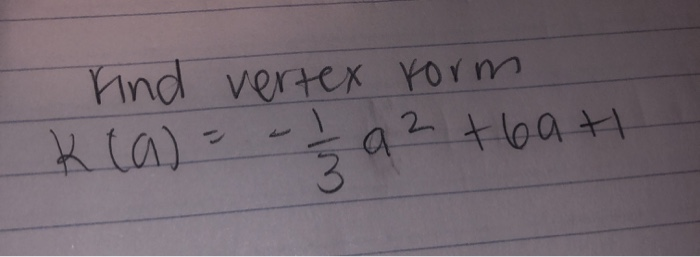 Find vertex form
K(a) = -1/3 a² + 6a + 1